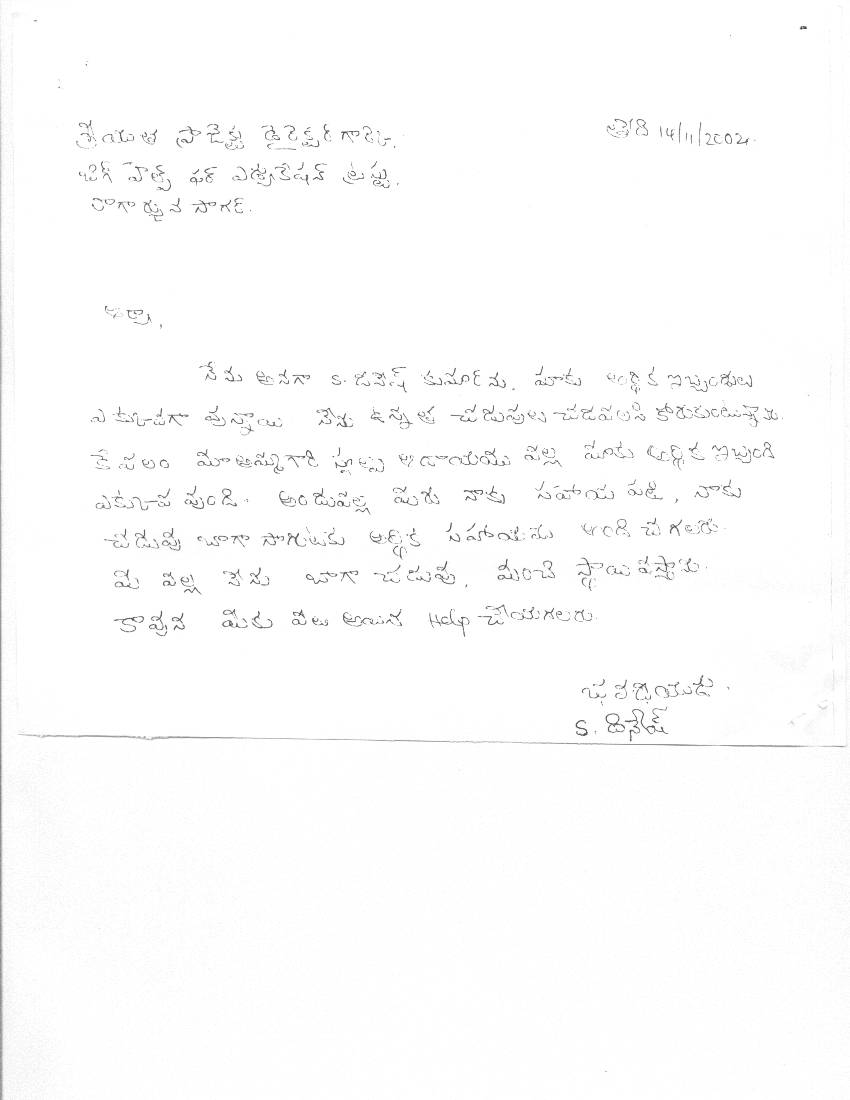 శ్రీయుత ప్రాజెక్టు డైరెక్టర్ గారికి, తేది 14/11/2002.
బిగ్ హెల్ప్ ఫర్ ఎడ్యుకేషన్ ట్రస్టు,
నాగార్జున సాగర్.
ఆర్యా,
నేను అనగా S. దినేష్ కుమార్ ను. మాకు ఆర్థిక ఇబ్బందులు
ఎక్కువగా వున్నాయి నేను ఉన్నత చదువులు చదవలని కోరుకుంటున్నాను.
కేవలం మా అమ్మగారి స్వల్ప ఆదాయము వల్ల మాకు ఆర్థిక ఇబ్బంది
ఎక్కువ వుంది. అందువల్ల మీరు నాకు సహాయ పడి, నాకు
చదువు బాగా సాగుటకు ఆర్థిక సహాయను అంది చేగలరు.
మీ వల్ల నేను బాగా చదువు, మంచి స్థాయి వస్తాను.
కావున మీకు వీలు అయిన Help చేయగలరు.
భవదీయుడు.
S. దినేష్